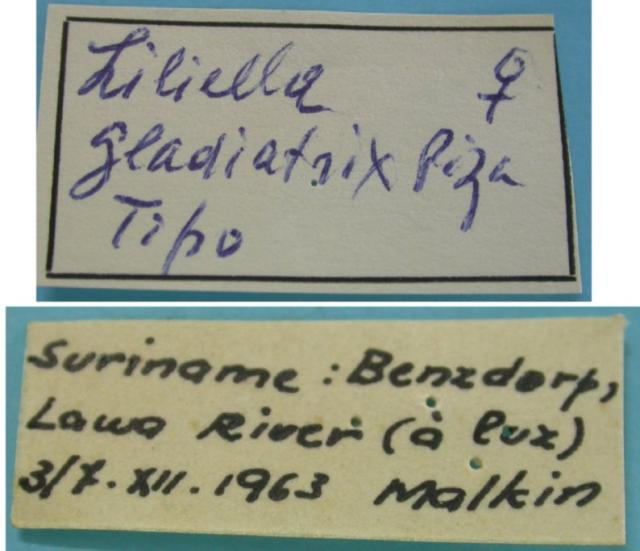 Liliella ♀
gladiatrix Piza
Tipo
Suriname: Benzdorp,
Lawa River (à luz)
3/7.XII.1963 Malkin